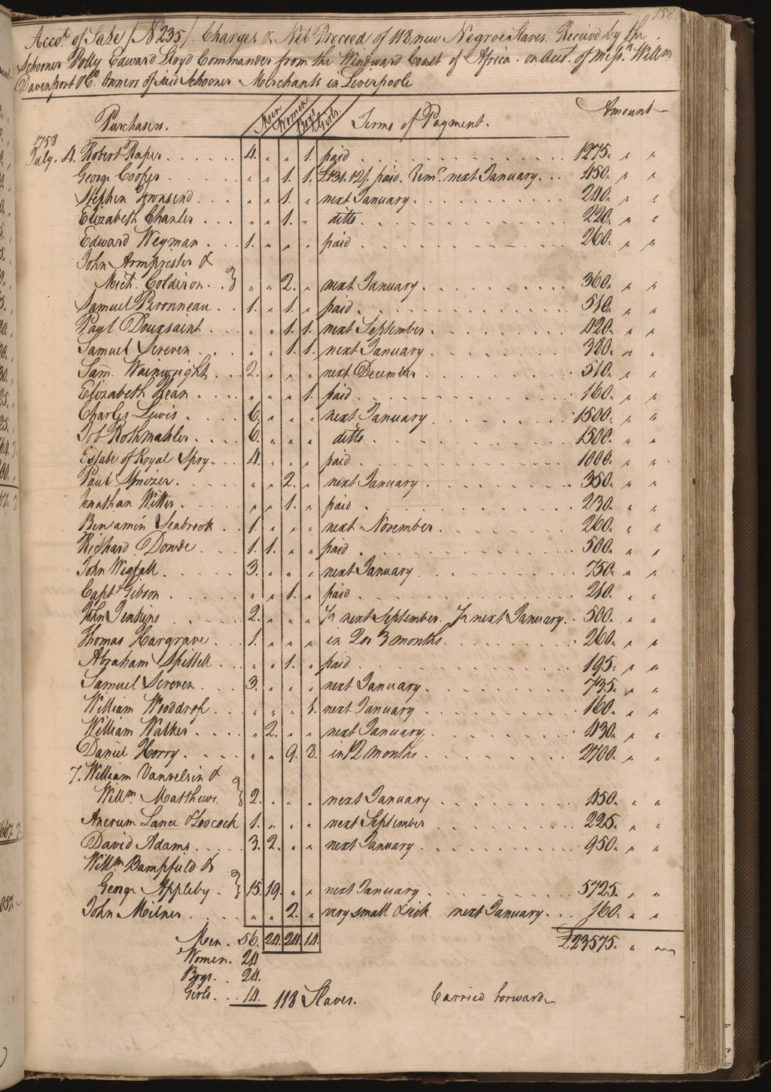 Acco.t of Sale /N235/. Charges & Net Proceed of 118 new Negroe Slaves. Received by the
Schooner Polly Edward Lloyd Commander from the Windward Coast of Africa. on Acct. of Mess.rs Will.m
Davenport & Co. Owners of said Schooner Merchants in Liverpoole
Purchasers. Men. Women. Boys. Girls. Terms of Payment. Amount
1758
July. 4. Robert Raper. 4. „ „ 1. paid 1275. „ „
George Cooper. „ „ 1. 1. £131.12/. paid. Rem.r next January. 450. „ „
Stephen Townsend. „ „ 1. „ next January. 240. „ „
Elizabeth Chanler „ „ 1. „ ditto. 220. „ „
Edward Weyman 1. „ „ „ paid 260. „ „
John Armprester &
Mich. Coldiron. } „ „ 2. „ next January. 360. „ „
Samuel Peronneau. 1. „ 1. „ paid. 510. „ „
Paul Douxsaint „ „ 1. 1. next September. 420. „ „
Samuel Screven „ „ 1. 1. next January. 320. „ „
Sam. Wainwright. 2. „ „ „ next December. 510. „ „
Elizabeth Bean. „ „ „ 1. paid 160. „ „
Charles Lewis. 6. „ „ „ next January. 1500. „ „
Job Rothmahler. 6. „ „ „ ditto 1500. „ „
Estate of Royal Spry. 4. „ „ „ paid. 1000. „ „
Paul „ „ 2. „ next January. 350. „ „
Jonathan Witter. „ „ 1. „ paid. 230. „ „
Benjamin Seabrook 1. „ „ „ next November. 260. „ „
Richard Dowse. 1. 1. „ „ paid 500. „ „
John Wigfall. 3. „ „ „ next January. 750. „ „
Capt. Gibson. „ „ 1. „ paid. 210. „ „
John Jenkins 2. „ „ „ ½ next September. ½ next January. 500. „ „
Thomas Hargrave. 1. „ „ „ in 2 or 3 months. 260. „ „
Abraham „ „ 1. „ paid 195. „ „
Samuel Screven 3. „ „ „ next January. 735. „ „
William Wooddrof. „ „ „ 1. next January 160. „ „
William Walker. „ 2. „ „ next January. 430. „ „
Daniel Horry. „ „ 9. 8. in 12 months. 2700. „ „
7. William Vanvelsin &
Will.m Matthews. } 2. „ „ „ next January. 450. „ „
Ancrum Lance & Loocock 1. „ „ „ next September 225. „ „
David Adams. 3. 2. „ „ next January. 950. „ „
Will.m Bampfield &
George Appleby. } 15. 19. „ „ next January. 5725. „ „
John Milner. „ „ 2. „ very small & sick. next January. 160. „ „
Men. 56. 24. 24. 14. £23575. „ „
Women. 24.
Boys. 24.
Girls. 14. 118 Slaves. Carried forward